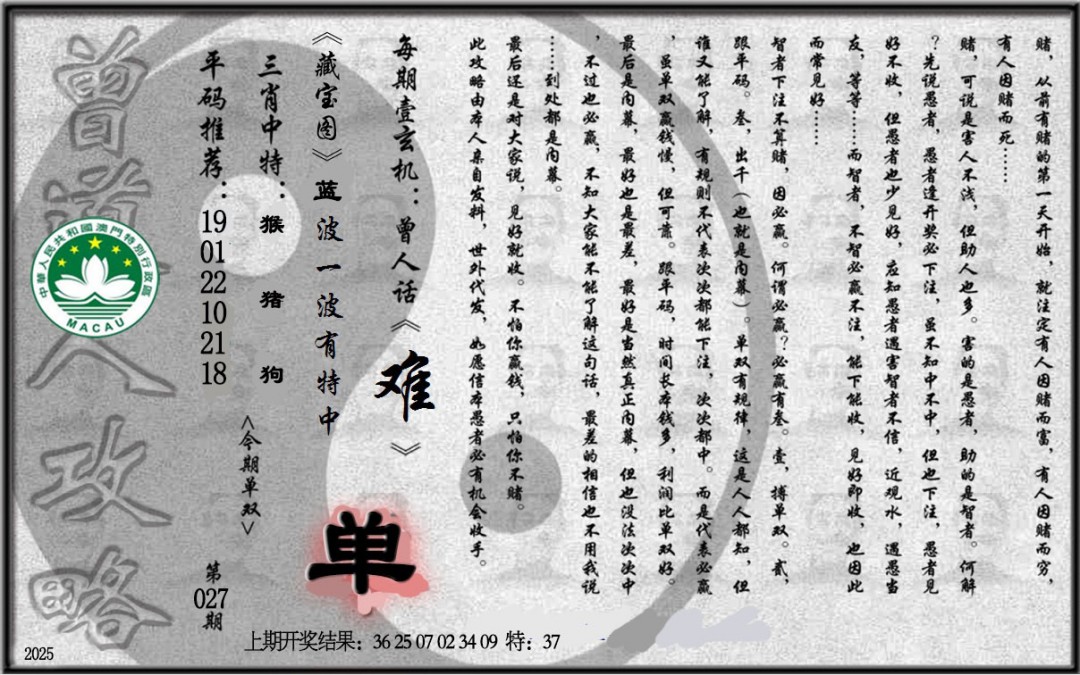 赌，从前有赌的第一天开始，就注定有人因赌而富，有人因赌而穷，
有人因赌而死……
赌，可说是害人不浅，但助人也多。害的是愚者，助的是智者。何解
？先说愚者，愚者逢开奖必下注，虽不知中不中，但也下注，愚者见
好不收，但愚者也少见好，应知愚者遇害智者不信，近观水，遇愚当
友，等等……而智者，不智必赢不注，能下能收，见好即收，也因此
而常见好……
智者下注不算赌，因必赢。何谓必赢？必赢有叁。壹，搏单双。贰，
跟平码。叁，出千（也就是内幕）。单双有规律，这是人人都知，但
谁又能了解，有规则不代表次次都能下注，次次都中。而是代表必赢
，虽单双赢钱慢，但可靠。跟平码，时间长本钱多，利润比单双好。
最后是内幕，最好也是最差，最好是当然真正内幕，但也没法次次中
，不过也必赢，不知大家能不能了解这句话，最差的相信也不用我说
……到处都是内幕。
最后还是对大家说，见好就收。不怕你赢钱，只怕你不赌。
此攻略由本人亲自发料，世外代发，如愿信本愚者必有机会收手。
每期壹玄机：曾人话《难》
《藏宝图》蓝波一波有特中
单
三肖中特：猴 猪 狗
<今期单双>
平码推荐：19 01 22 10 21 18
第027期
曾道人攻略
中華人民共和國澳門特別行政區
MACAU
上期开奖结果：36 25 07 02 34 09 特：37
2025